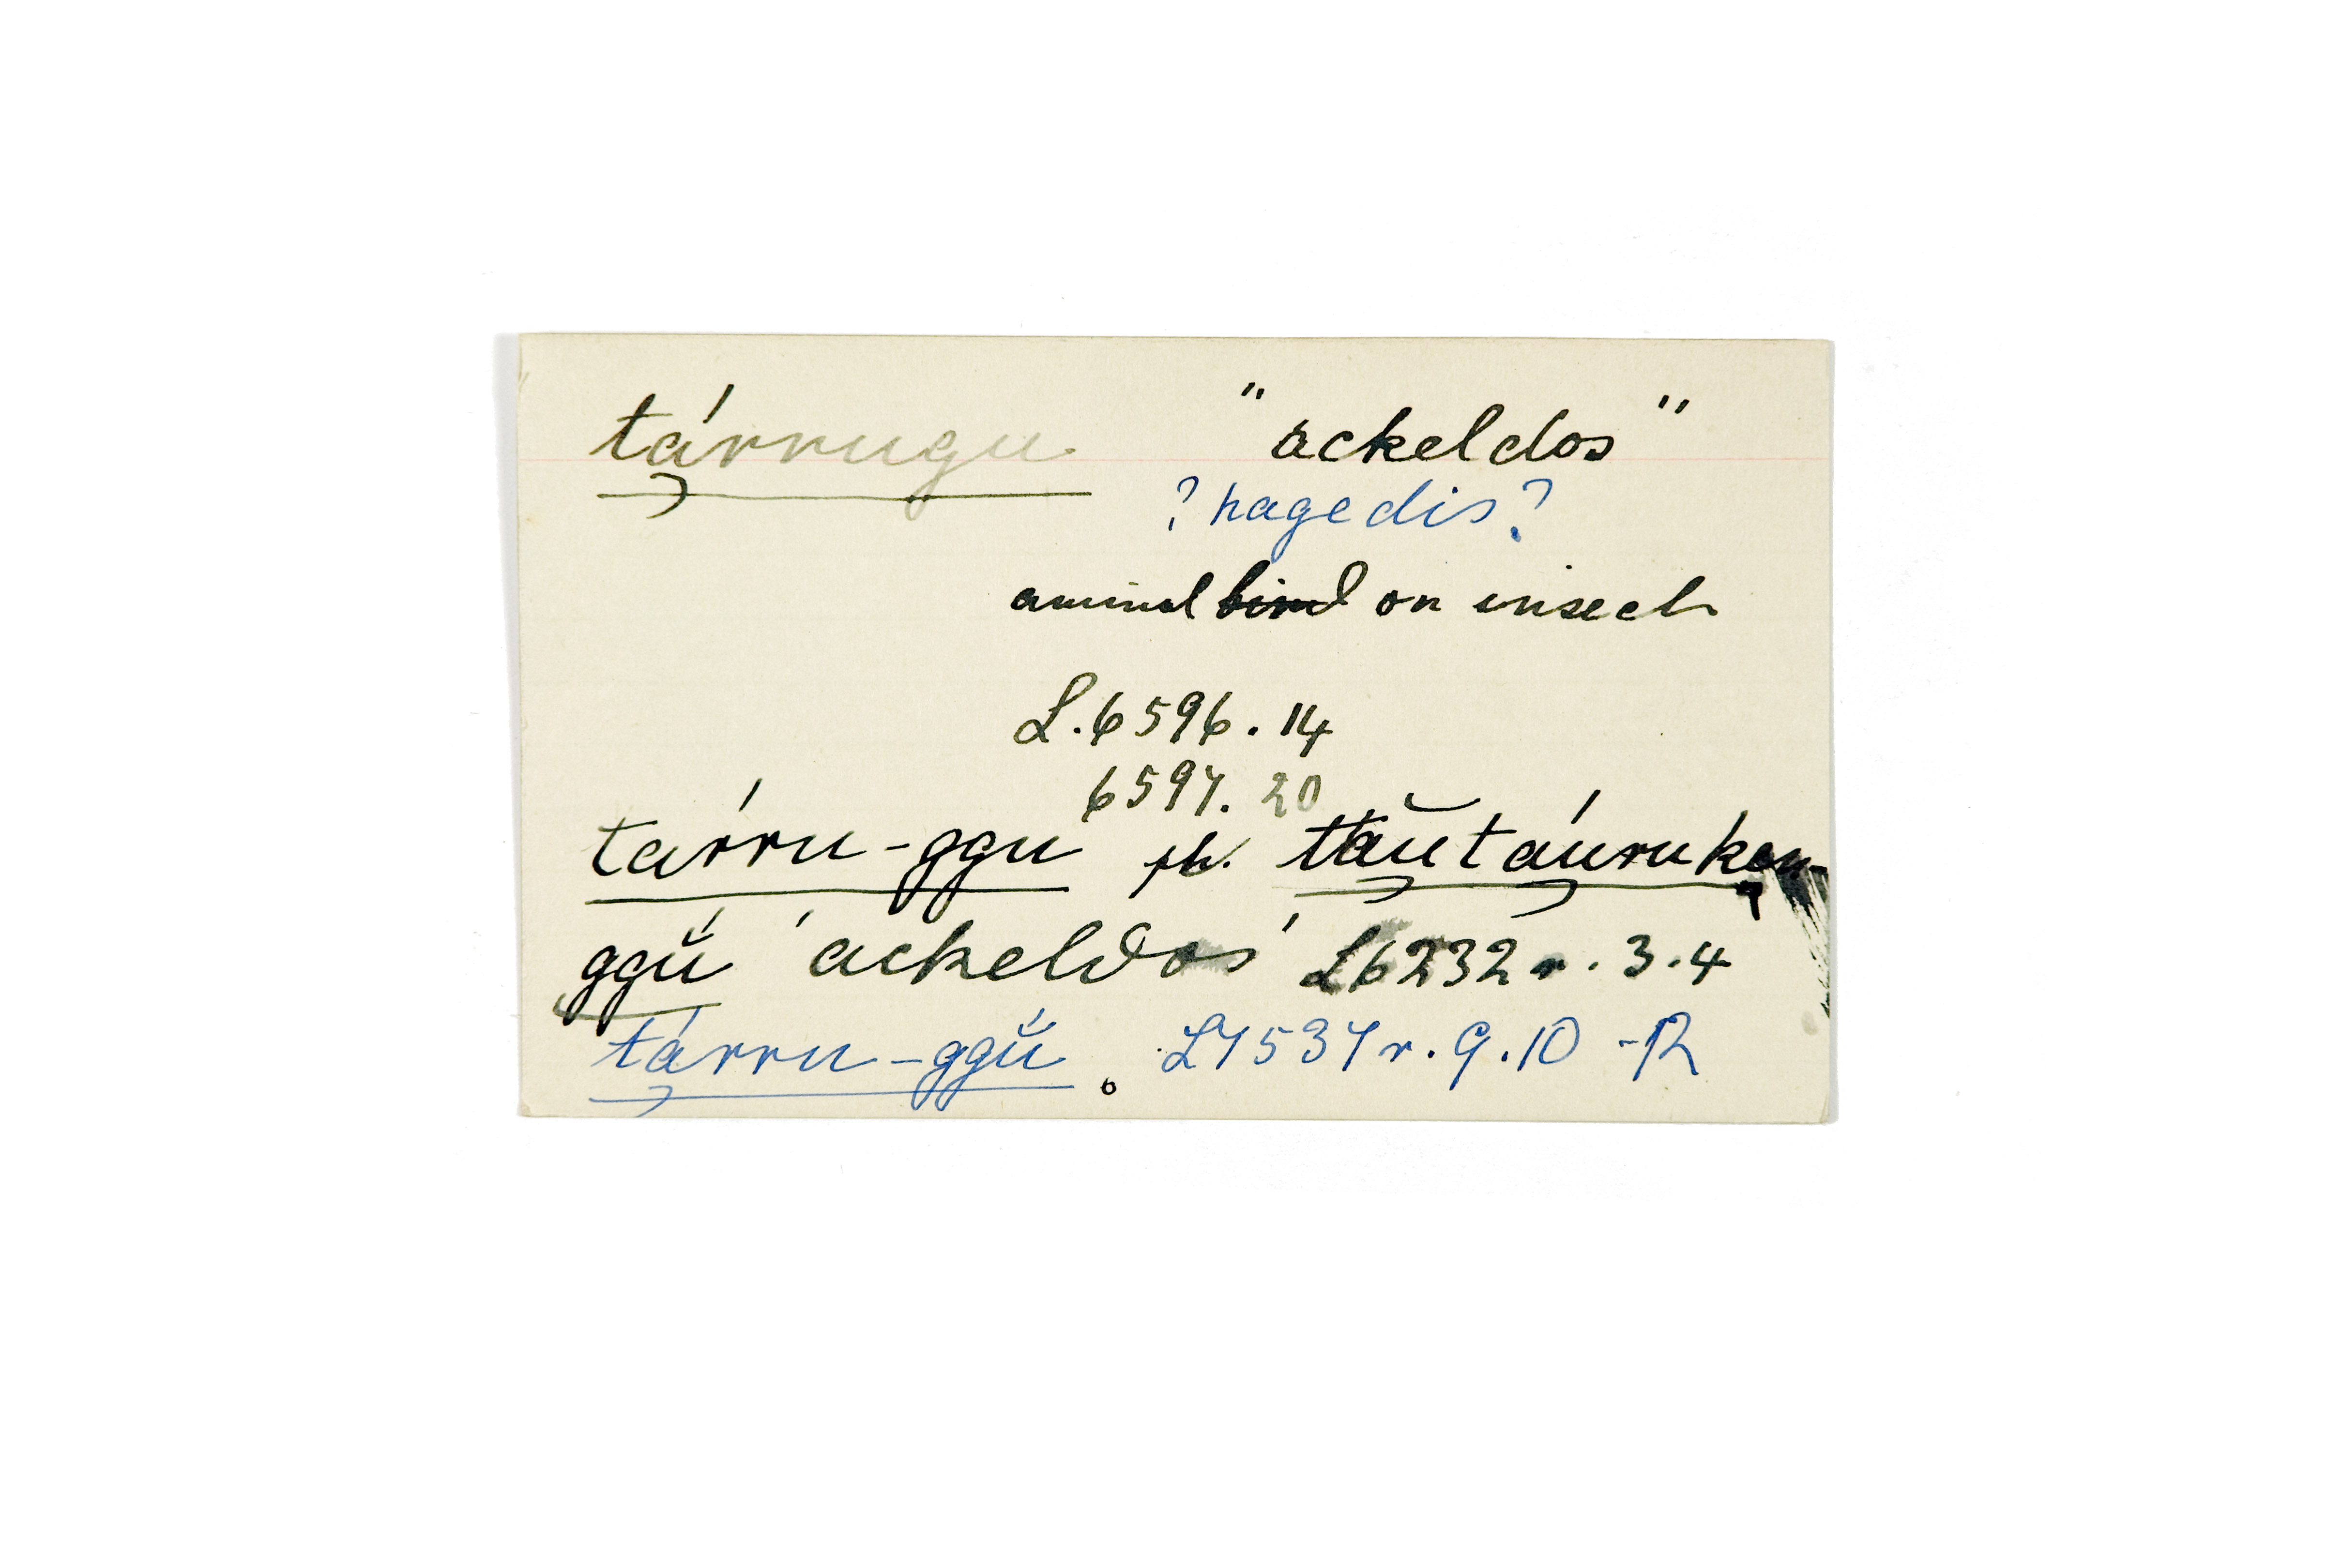 tárrugu "ackeldos"
? hagedis ?
animal bird or insect
L. 6596. 14
6597. 20
tárru-ggu pl. tăutáuruken-
ggŭ 'ackeldos' L6232 r. 3.4
tárru-ggŭ. L7537 r. 9.10 -12